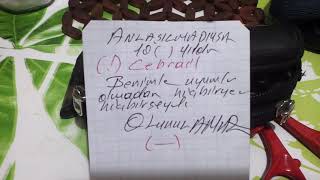 ANLAŞILMADIYSA
10 ( ) Yıldır
(.!) Cebrail
Benimle uyumlu
olmadan hiçbiryer
hiçbirşeyi
(—)